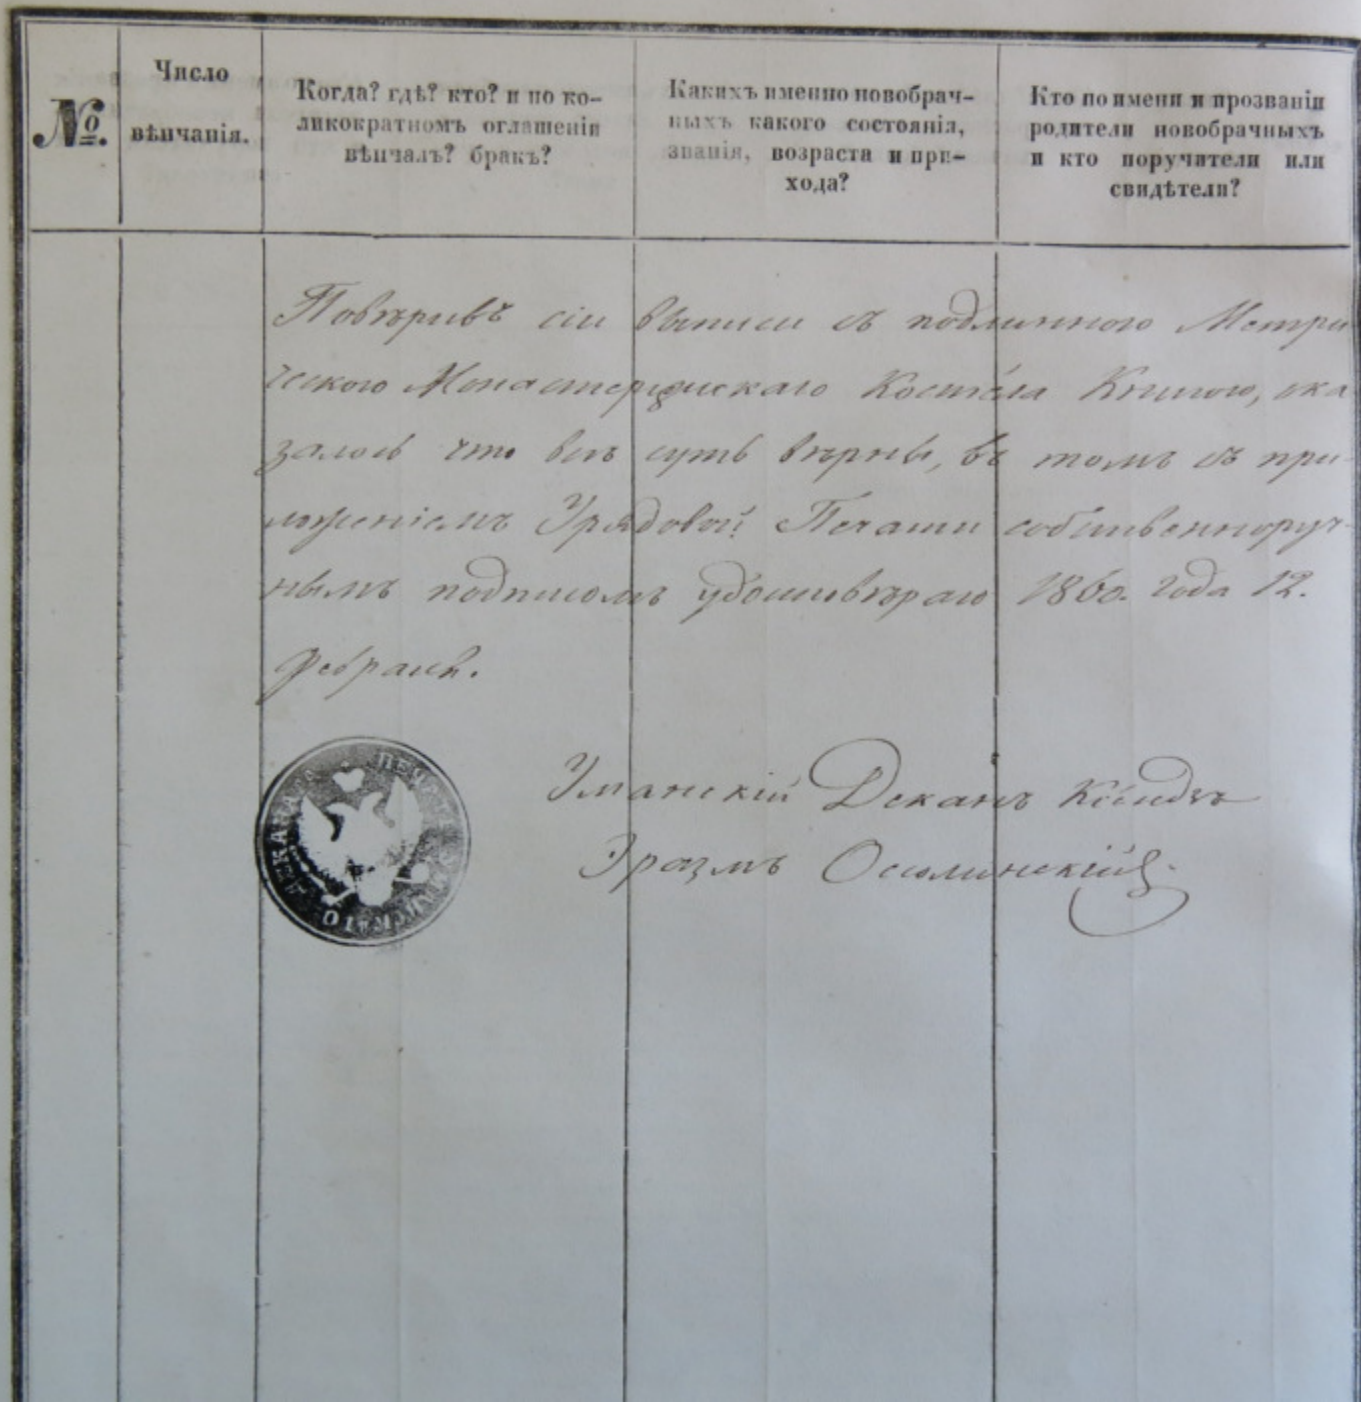 №.
Число
вѣнчанія.
Когда? гдѣ? кто? и по ко-
ликократномъ оглашеніи
вѣнчалъ? бракъ?
Какихъ именно новобрач-
ныхъ какого состоянія,
званія, возраста и при-
хода?
Кто по имени и прозваніи
родители новобрачныхъ
и кто поручители или
свидѣтели?
Повѣривъ сіи выписи съ подлинною Метри
ческою Монастырискаго Костела Книгою, ока
залось что всѣ суть вѣрны, въ томъ съ при-
ложеніемъ Урядовой Печати собственноруч-
нымъ подписомъ удостовѣраю 1860. года 12.
Февраля.
Уманскій Деканъ Ксіндзъ
Эразмъ Осолинскій
ПЕЧАТЬ УМАНСКАГО ДЕКАНА